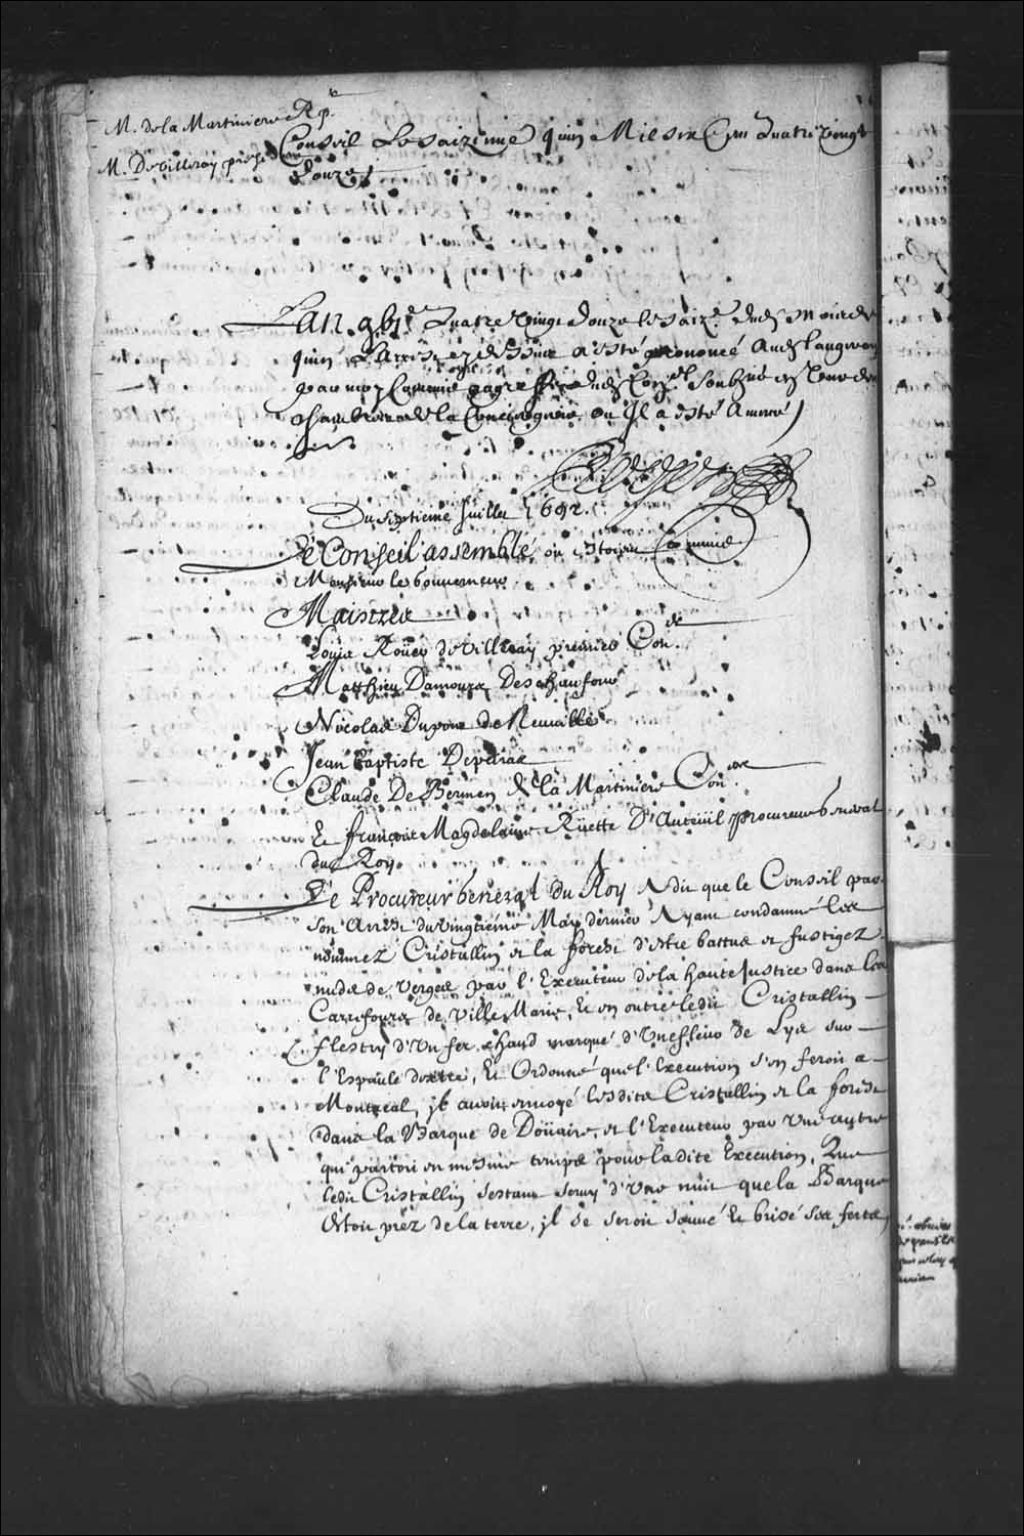 M. dela Martiniere Rap.r
M. Devilleray presid
Conseil Le saiziesme Juin Mil six Cens Quatre vingt
Douze
L'an g bjC Quatre vingt Douze le saize dud mois de
Juin L'arrest cy dessus a esté prononcé aud
par moy Commis greffier dud Con.el soubsné en l'une des
chambres de la Conciergerie ou Il a esté Amené
Du septieme Juillet 1692.
Le Conseil assemblé, ou estoient Comme
Monsieur le Gouverneur
Maistres
Louis Roüer de Villeray premier Con.er
Matthieu Damours Deschaufour
Nicolas Dupont de Neuville
Jean baptiste Depeiras
Claude De Bermen de la Martiniere Con.ers
Et françois Magdelaine Rüette D'Auteüil procureur General
du Roy
Le Procureur General du Roy A dit que le Conseil par
son Arrest du vingtieme May dernier Ayant condamné les
nommez Cristallin et la forest d'estre battus et fustigez
nuds de verges par l'Executeur dela haute Justice dans les
Carrefours de Ville Marie, Et en outre ledit Cristallin
flestry d'Un fer chaud marqué d'Une fleur de Lys sur
l'Espaule dextre, Et Ordonné que l'Execution s'en feroit a
Montreal, jl avoit envoyé lesdits Cristallin et la forest
dans la Barque de Doüaire, et l'Executeur par Une autre
qui partoit en mesme temps pour ladite Execution, Que
ledit Cristallin s'estant servy d'Une nuit que la Barque
Estoit prez de la terre, jl se seroit sauvé Et brisé ses fers